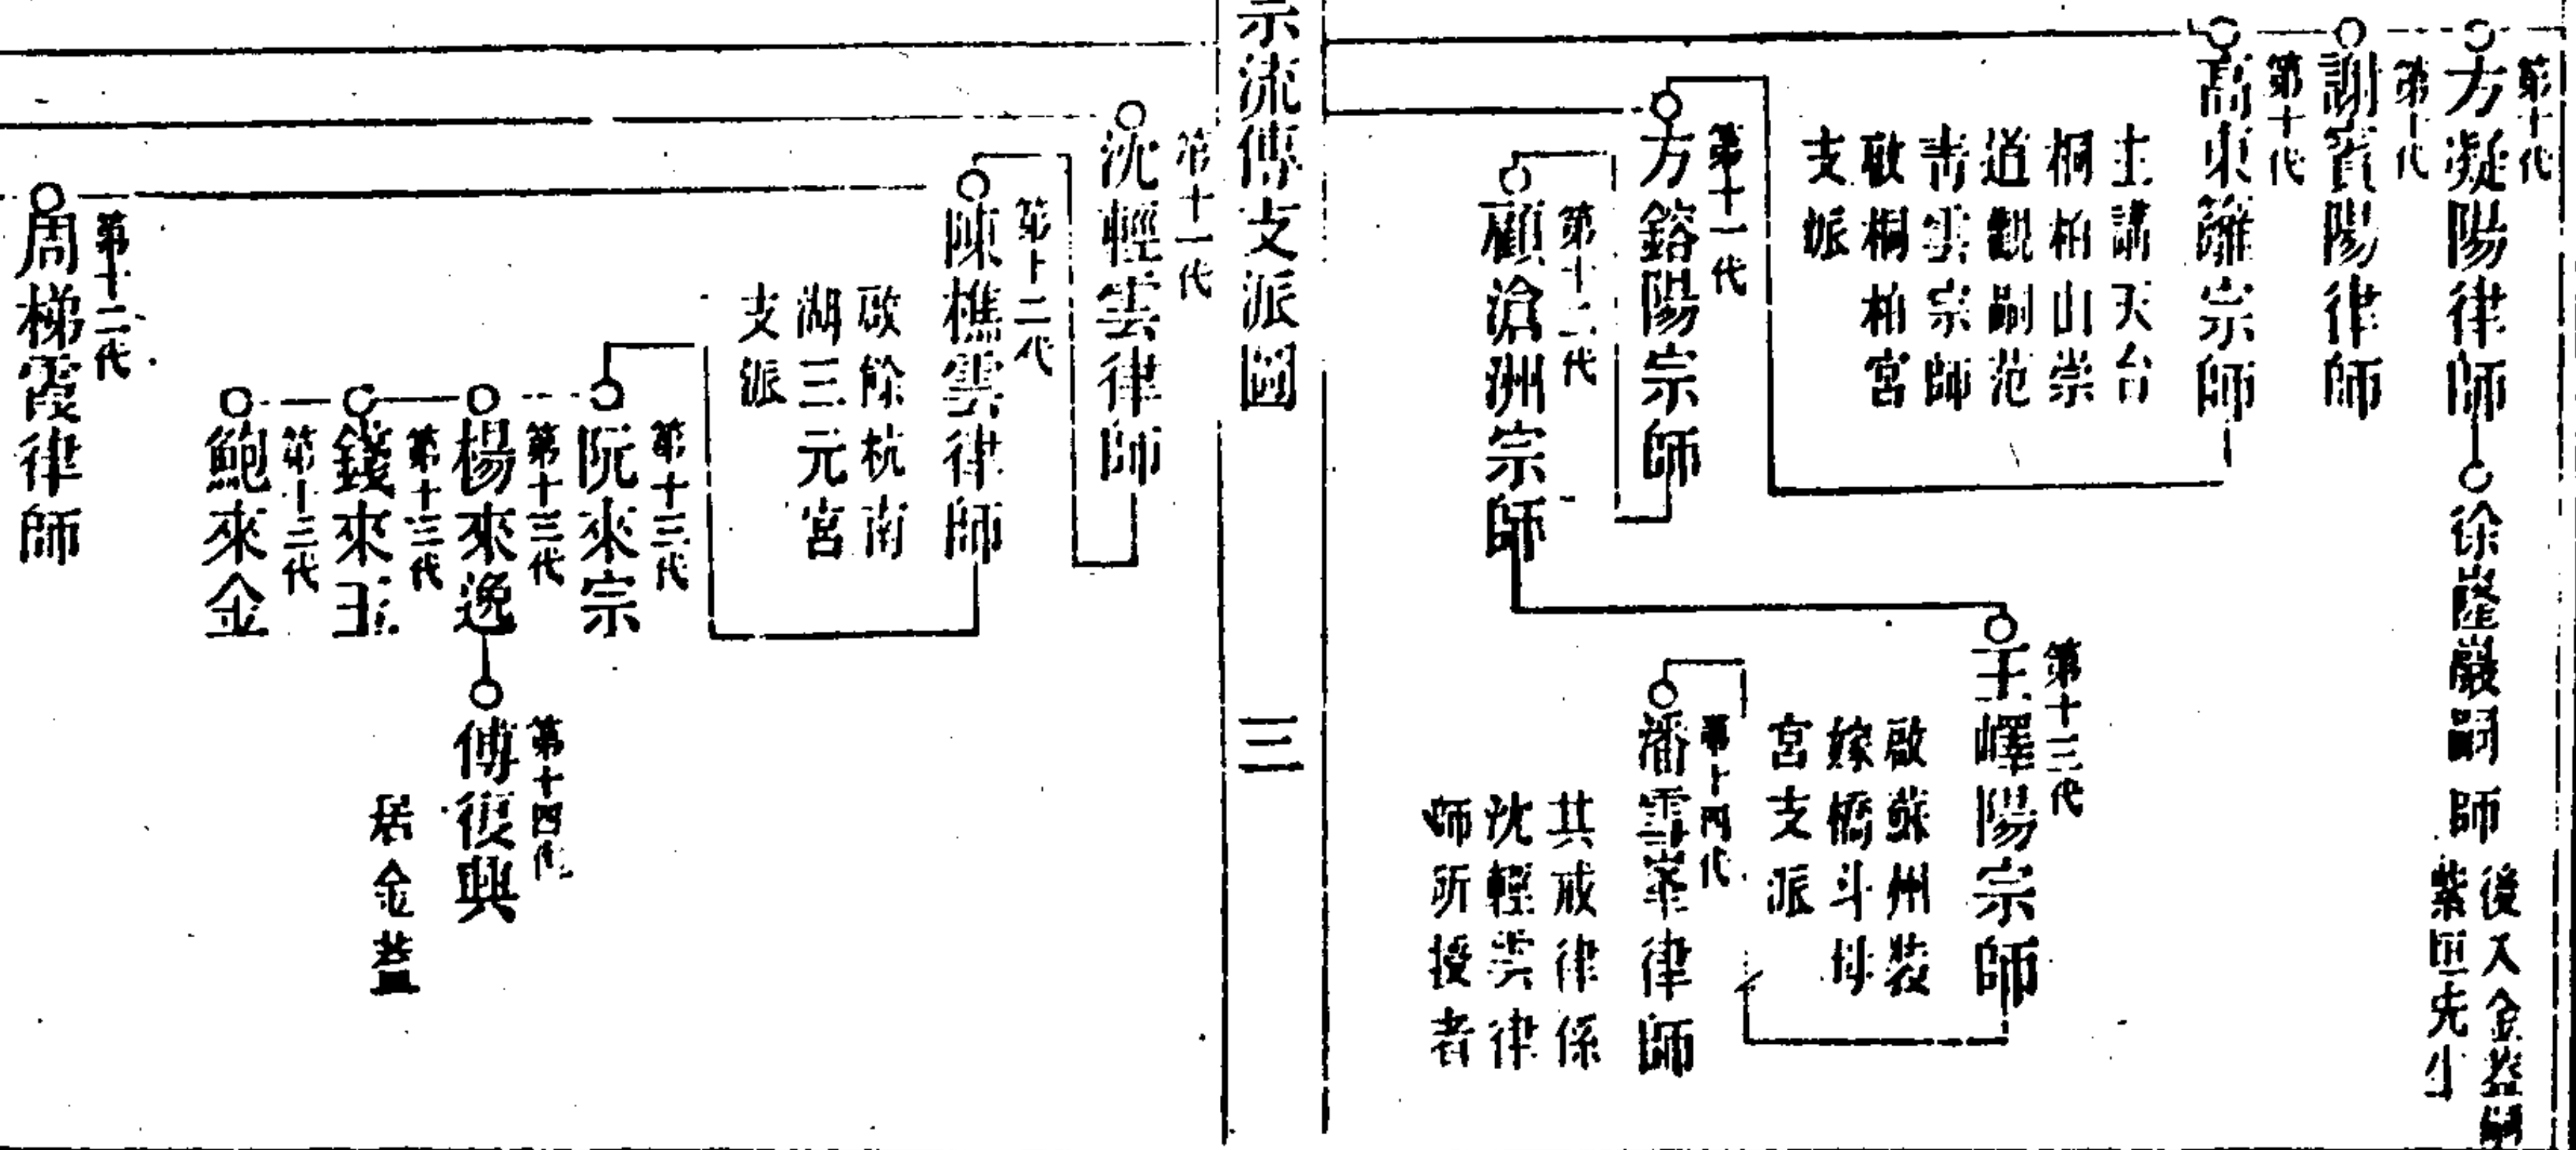 第十代
方凝陽律師
徐隆巖嗣師
後入金蓋嗣
紫垣先生
第十代
謝賓陽律師
第十代
高東籬宗師
主講天台
桐柏山崇
道觀嗣范
青雲宗師
啟桐柏宮
支派
第十一代
方鎔陽宗師
第十二代
顧滄洲宗師
第十三代
王嶧陽宗師
啟蘇州裝
嫁橋斗母
宮支派
第十四代
潘雪峯律師
共戒律係
沈輕雲律
師所授者
宗流傳支派圖
三
第十一代
沈輕雲律師
第十二代
陳樵雲律師
啟餘杭南
湖三元宮
支派
第十三代
阮來宗
第十三代
楊來逸
第十四代
傅復興
居金蓋
第十三代
錢來玉
第十三代
鮑來金
第十二代
周梯霞律師